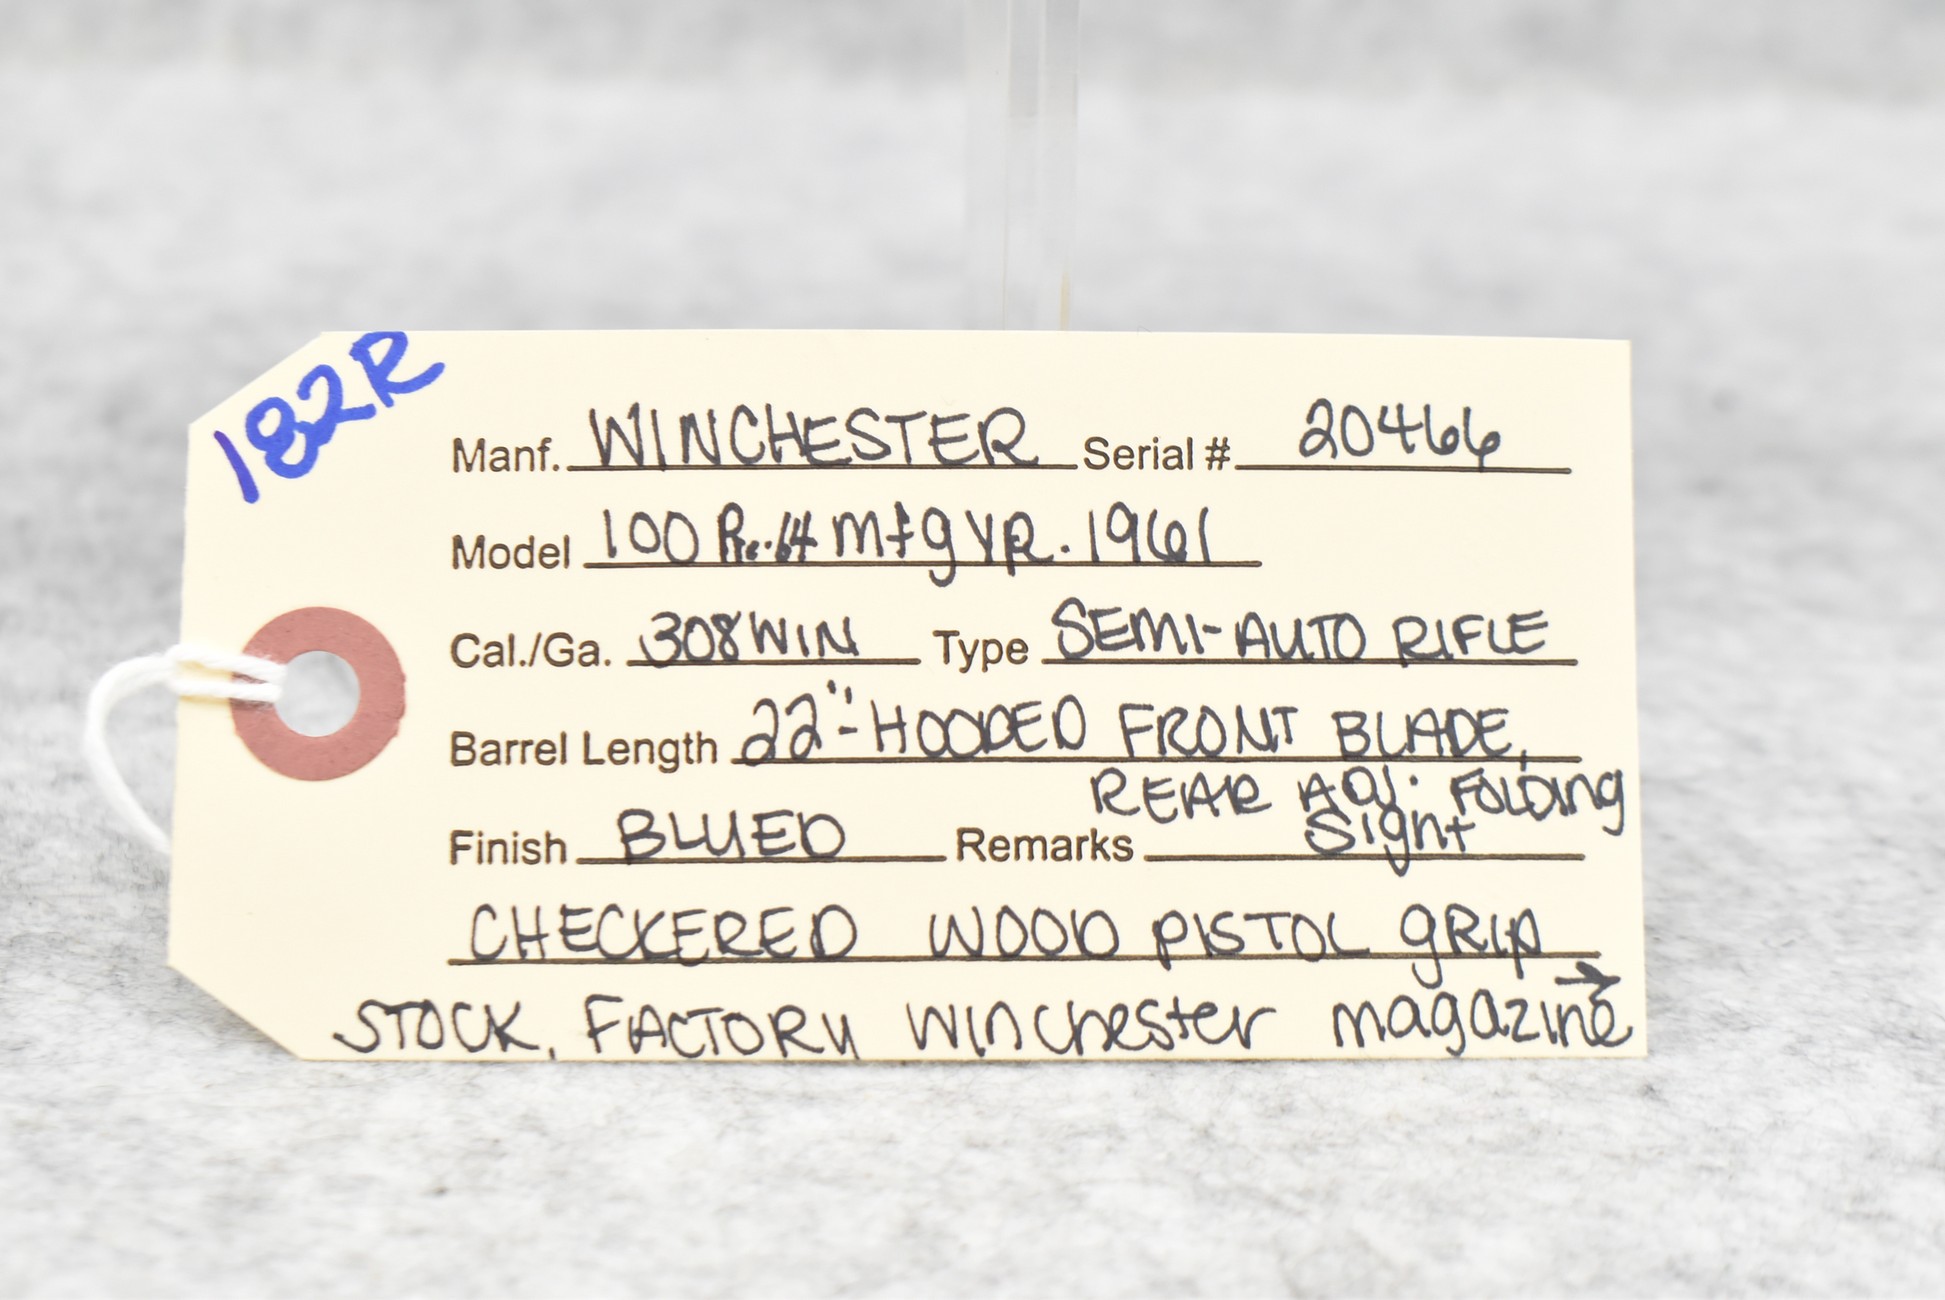 182R
Manf. WINCHESTER Serial # 20466
Model 100 Pre-64 Mfg YR. 1961
Cal./Ga. .308 WIN Type SEMI-AUTO RIFLE
Barrel Length 22"- HOODED FRONT BLADE,
REAR ADJ. FOLDING
Sight
Finish BLUED Remarks
CHECKERED WOOD PISTOL GRIP
STOCK, FACTORY WINCHESTER MAGAZINE →